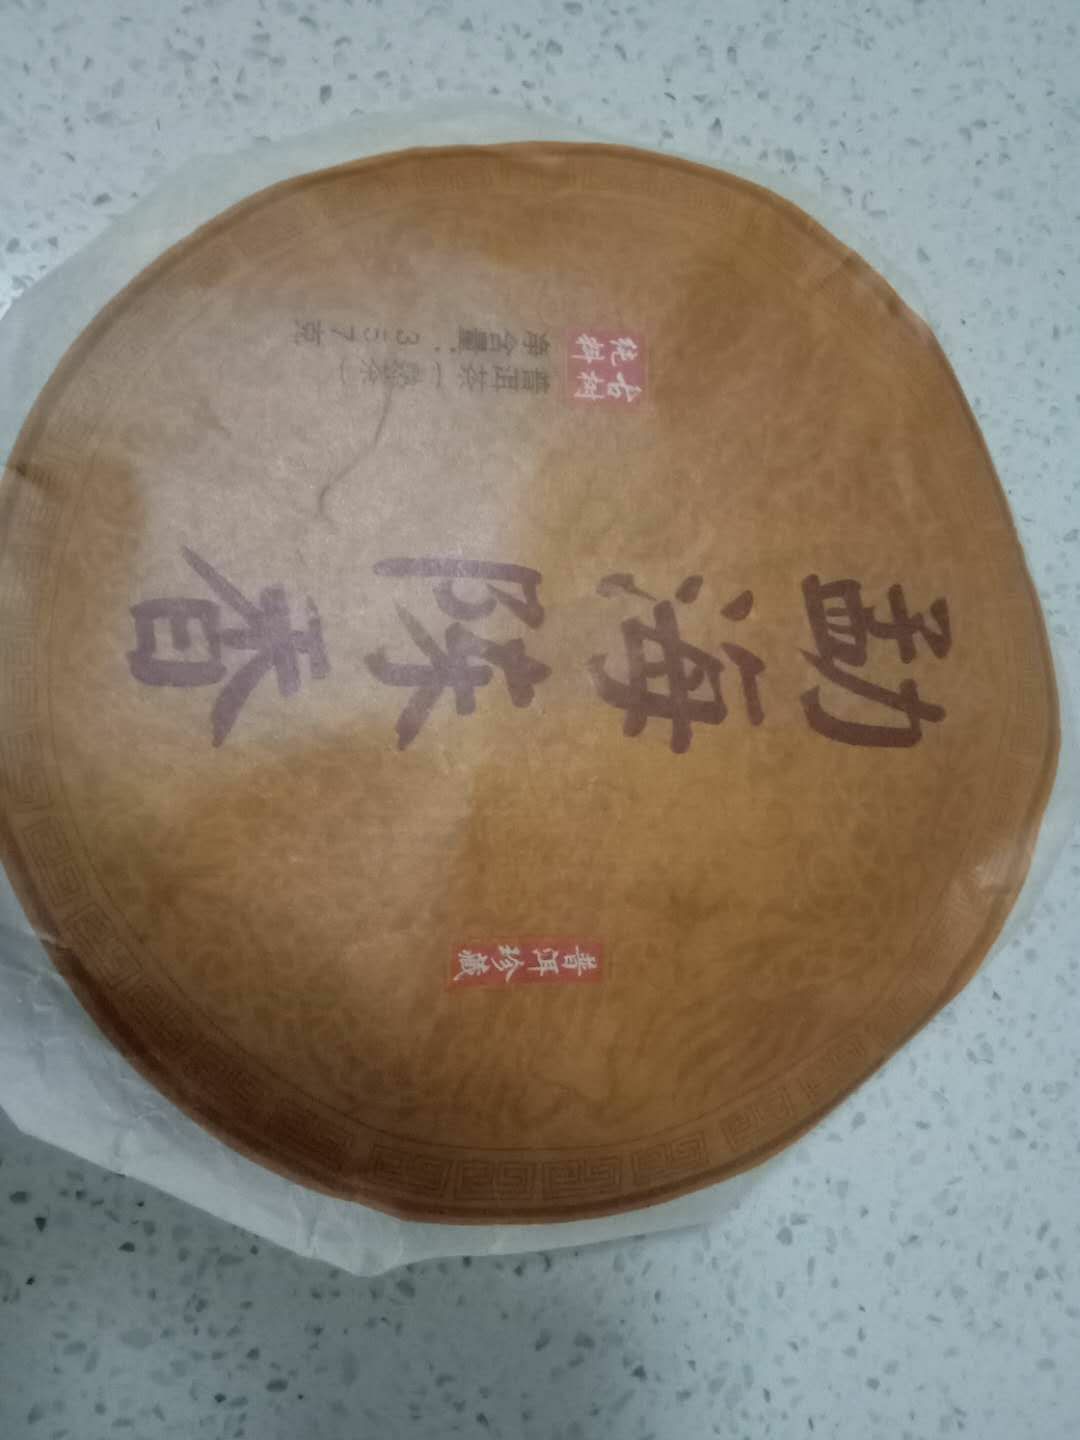 普洱珍藏
勐海陈香
古树
绝料
普洱茶（熟茶）
净含量：357克